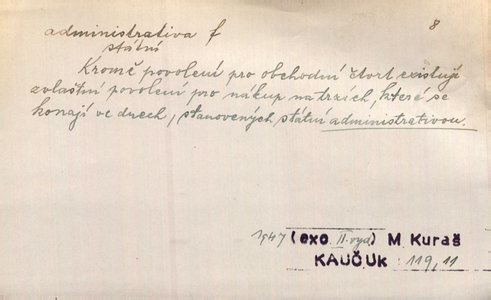 administrativa f 8
státní
Kromě povolení pro obchodní čtvrt existují
zvláštní povolení pro nákup na trzích, které se
konají ve dnech, stanovených státní administrativou.
1947 (exc II. vyd.) M Kuraš
KAUČUK : 119, 11